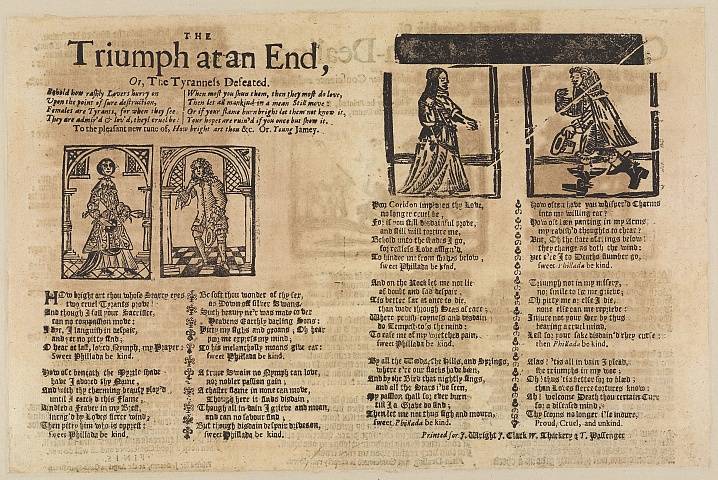 THE
Triumph at an End,
Or, The Tyranness Defeated.
Behold how rashly Lovers hurry on
Upon the point of sure destruction,
Females are Tyrants, for when they see
They are admir'd & lov'd, they'l cruel be:
When most you shun them, then they most do love,
Then let all mankind in a mean Still move:
Or if your flame burn bright let them not know it,
Your hopes are ruin'd if you once but show it.
To the pleasant new tune of, How bright art thou &c. Or, Young Jamey.
HOw bright art thou whose Starry eyes
two cruel Tyrants prove!
And though I fall your Sacrifice,
can no compassion move:
I languish in despair,
and yet no pitty find,
O hear at last, lov'd Nymph, my Prayer:
Sweet Phillada be kind.
How oft beneath the Pyzle shade
have I ador'd thy Name,
And with thy charming beauty
until I catch'd this Flame!
Kindled a Feaver in my Brest,
by Loves fierce wind,
Then pitty him who is opprest:
sweet Phillada be kind.
Be soft thou wonder of thy sex,
as Down off silver Swans,
Such beauty ne'r was made to vex
Heavens Earthly darling Sons:
Pitty my sighs and groans, Oh hear
me express my mind;
To his melancholly moans give ear:
sweet Phillada be kind.
A truer Swain no Nymph can love,
nor nobler passion gain;
A chaster flame in none can move,
Though here it finds disdain,
Though all in vain I grieve and moan,
and can no favour find,
But though disdain
sweet Phillada be kind.
Poor Coridon implores thy Love,
no longer cruel be,
For if you still disdainful prove,
and still will torture me,
Behold unto the shades I go,
for restless Love assign'd,
To hinder me from shades below,
sweet Phillada be kind.
And on the Rock let me not lie
of doubt and sad despair,
'Tis better far at once to die,
than wade through Seas of care;
Where proud scorness and disdain
To ease me of my wretched pain,
sweet Phillada be kind.
By all the Woods, the Hills, and Springs,
where e're our flocks have been,
And by the Bird that nightly sings,
and all the Stars I've seen,
My passion shall for ever burn
till I a Shade do find;
Then let me not thus sigh and mourn,
sweet Phillada be kind.
How often have you whisper'd Charms
into my willing ear?
How oft lain panting in my Arms,
my ravish'd thoughts to chear?
But, Oh the fate of things below!
they change as doth the wind:
yet e're I to Deaths number go,
sweet Phillada be kind.
Triumph not in my misery,
no smile to see me grieve;
Oh pitty me; else I die,
none else can me reprieve:
Injure not your Sex by thus
bearing a cruel mind,
Lest for your sake disdain they curse:
then Phillada be kind.
Alas! 'tis all in vain I plead,
she triumphs in my woe;
Oh! thus 'tis better far to bleed,
than Loves fierce tortures know:
Ah! welcome Death thou certain Cure
for a distress'd mind,
Thy scorns no longer I'le injure,
Proud, Cruel, and unkind.
Printed for J. Wright, J. Clark W. Thackery & T. Passenger